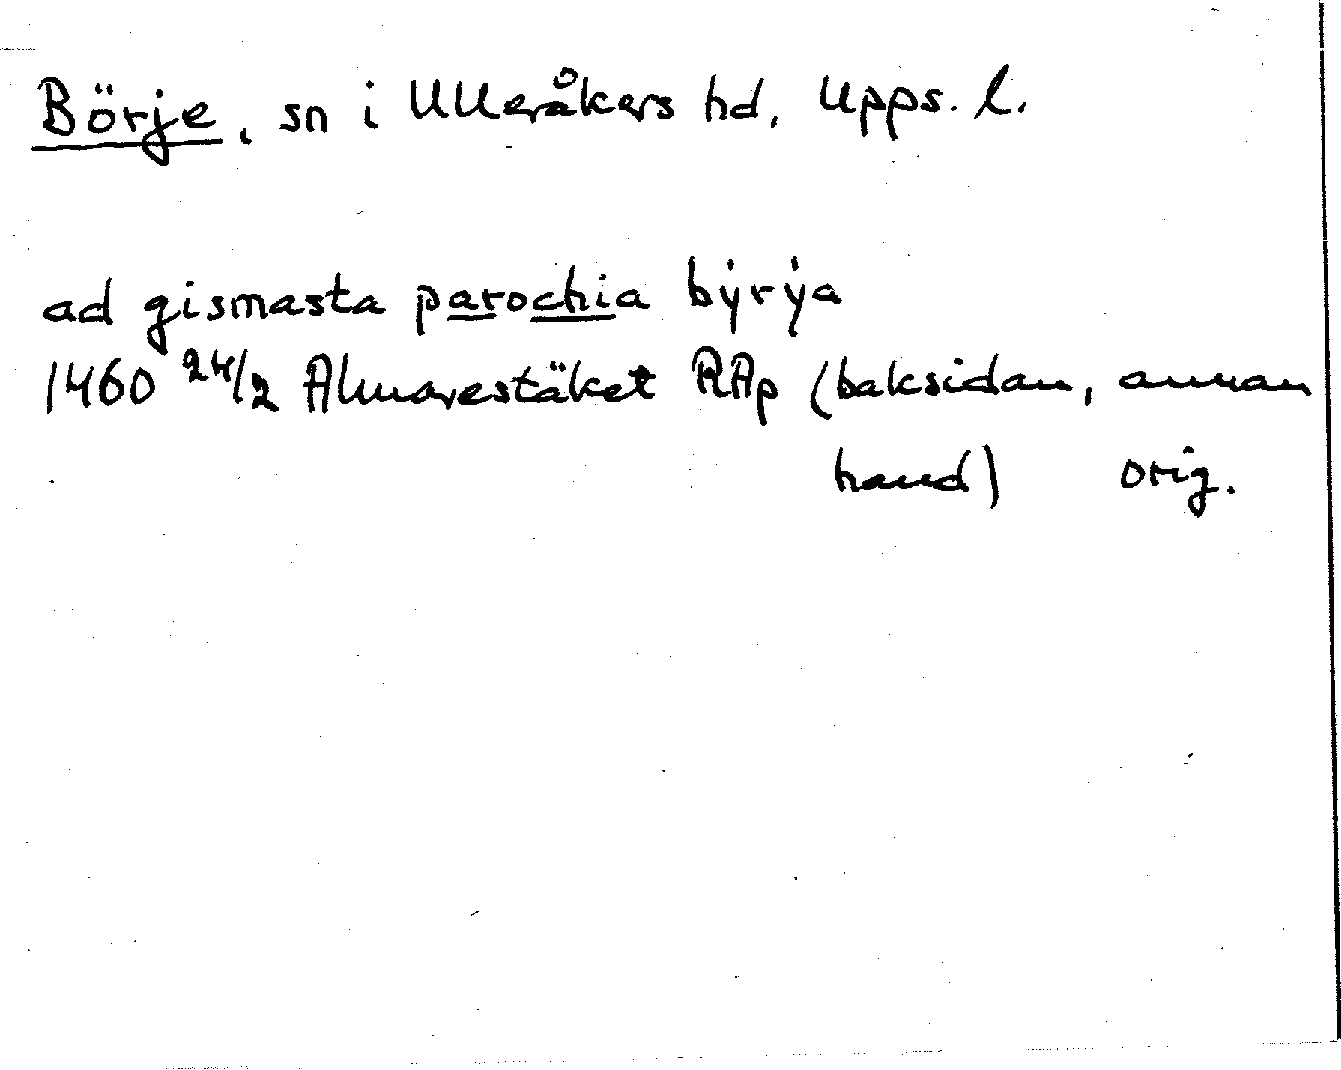 Börje, sn i Ulleråkers hd, Upps. l.
ad gismasta parochia bẏrẏa
1460 24/2 Almarestäket RAp (baksidan, annan
hand) orig.